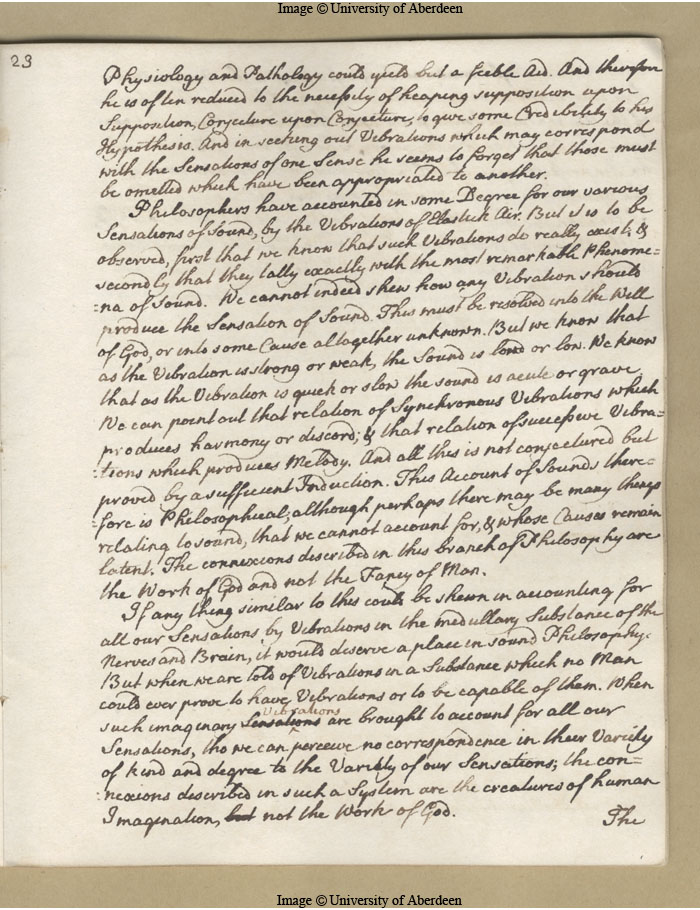 Image © University of Aberdeen
23
Physiology and Pathology could yield but a feeble Aid. And therefore
he is often reduced to the necessity of heaping supposition upon
Supposition, Conjecture upon Conjecture, to give some Credibility to his
Hypothesis. And in seeking out Vibrations which may correspond
with the Sensations of one Sense he seems to forget that those must
be omitted which have been appropriated to another.
Philosophers have accounted in some Degree for our various
Sensations of Sound, by the Vibrations of Elastick Air. But it is to be
observed, first that we know that such Vibrations do really exist; &
secondly that they tally exactly with the most remarkable Phenome=
=na of Sound. We cannot indeed shew how any Vibration should
produce the Sensation of Sound. This must be resolved into the Will
of God, or into some Cause altogether unknown. But we know that
as the Vibration is strong or weak, the Sound is loud or low. We know
that as the Vibration is quick or slow the sound is acute or grave
We can point out that relation of Synchronous Vibrations which
produces harmony or discord; & that relation of successive Vibra=
=tions which produces Melody. And all this is not conjectured but
proved by a sufficient Induction. This Account of Sounds there=
=fore is Philosophical; although perhaps there may be many things
relating to sound, that we cannot account for, & whose Causes remain
latent. The connexions described in this branch of Philosophy are
the Work of God and not the Fancy of Man.
If any thing similar to this could be shewn in accounting for
all our Sensations by Vibrations in the medullary Substance of the
Nerves and Brain, it would deserve a place in sound Philosophy.
But when we are told of Vibrations in a Substance which no Man
could ever prove to have Vibrations or to be capable of them. When
Vibrations
such imaginary Sensations are brought to account for all our
Sensations, tho we can perceive no correspondence in their Variety
of kind and degree to the Variety of our Sensations; the con=
=nexions described in such a System are the creatures of human
Imagination, but not the Work of God.
The
Image © University of Aberdeen